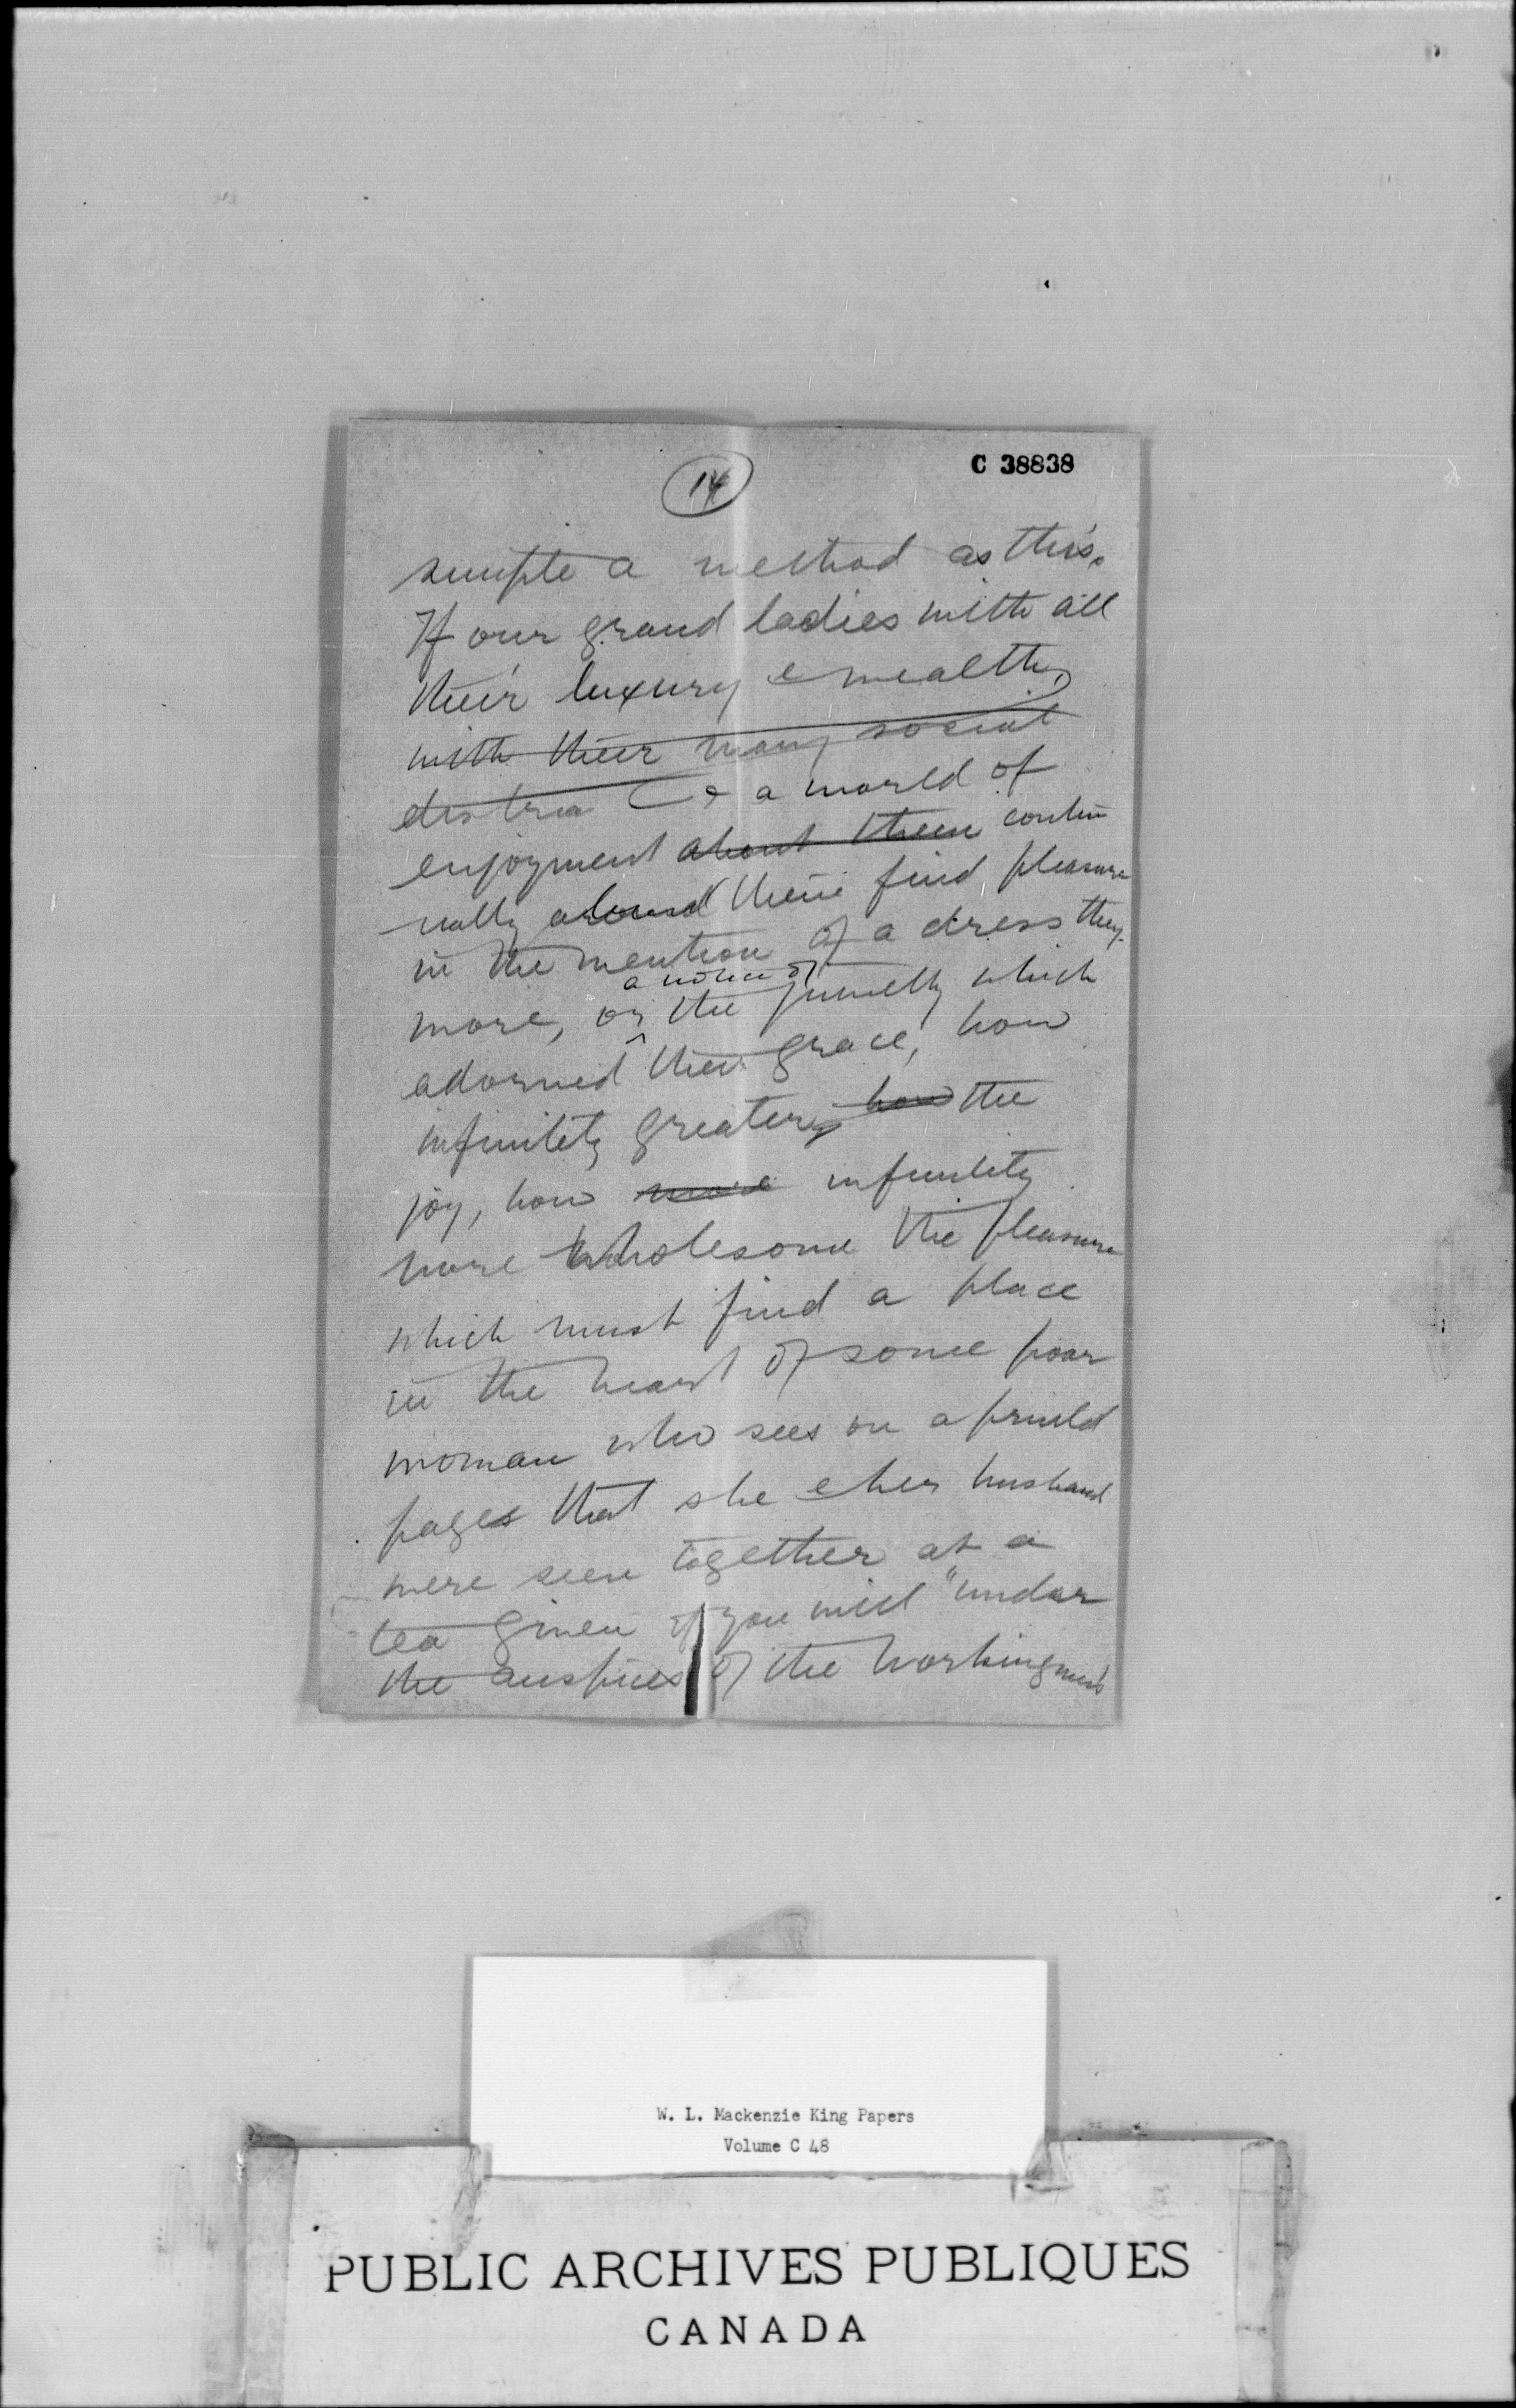 14
C 38838
simple a method as this.
If our grand ladies with all
their luxury & wealth,
with their many social
distra & a world of
enjoyment about them contin
ually around them find pleasure
in the mention of a dress they
wore, or a notice of the jewelry which
adorned their grace, how
infinitely greater, how the
joy, how more infinitely
more wholesome the pleasure
which must find a place
in the heart of some poor
woman who sees on a printed
pages that she & her husband
were seen together at a
tea given if you will "under
the auspices of the Workingmen's
W. L. Mackenzie King Papers
Volume C 48
PUBLIC ARCHIVES PUBLIQUES
CANADA